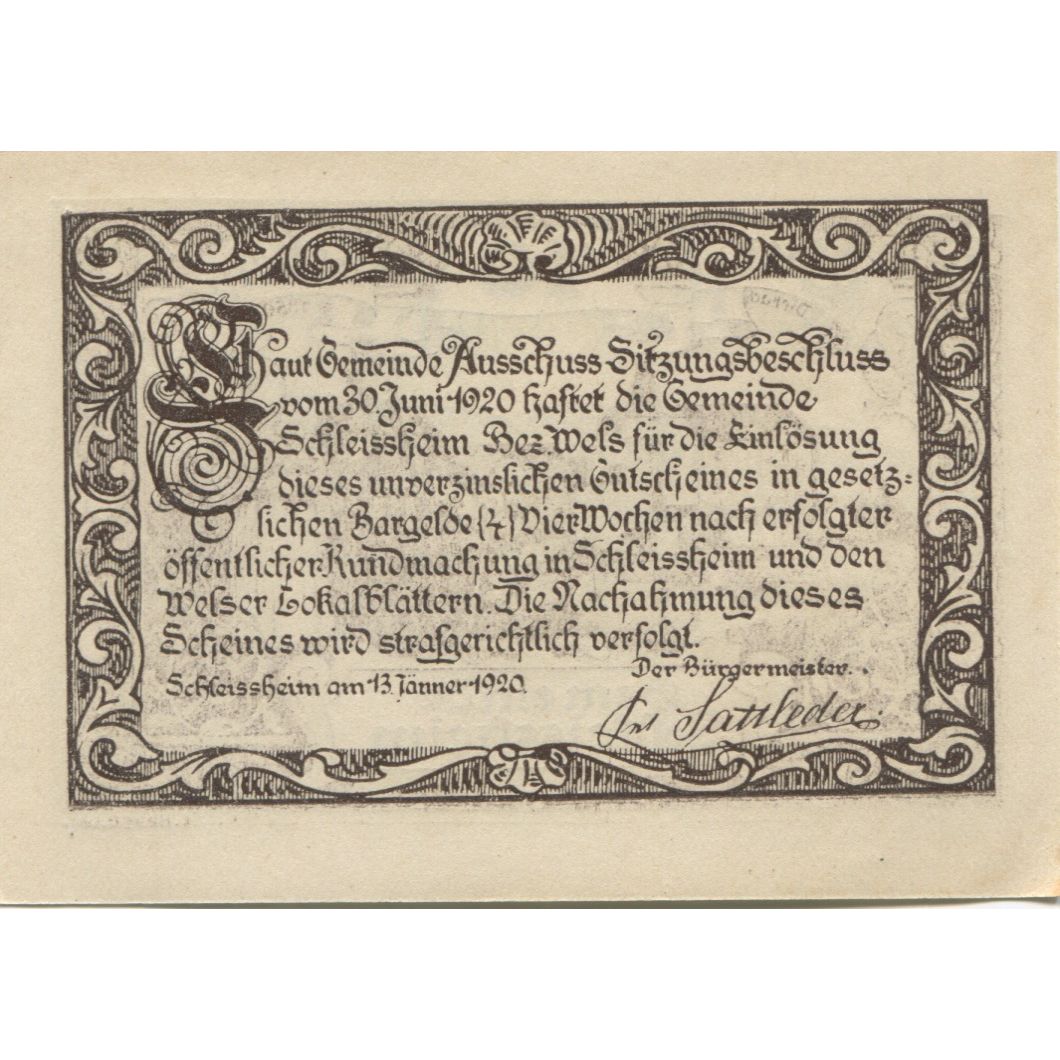 Laut Gemeinde Ausschuss-Sitzungsbeschluss
vom 30. Juni 1920 haftet die Gemeinde
Schleissheim Bez. Wels für die Einlösung
dieses unverzinslichen Gutscheines in gesetz=
lichen Bargelde {4} Vier Wochen nach erfolgter
öffentlicher Kundmachung in Schleissheim und den
Welser Lokalblättern. Die Nachahmung dieses
Scheines wird strafgerichtlich verfolgt.
Der Bürgermeister.
Schleissheim am 13. Jänner 1920.
Sattleder